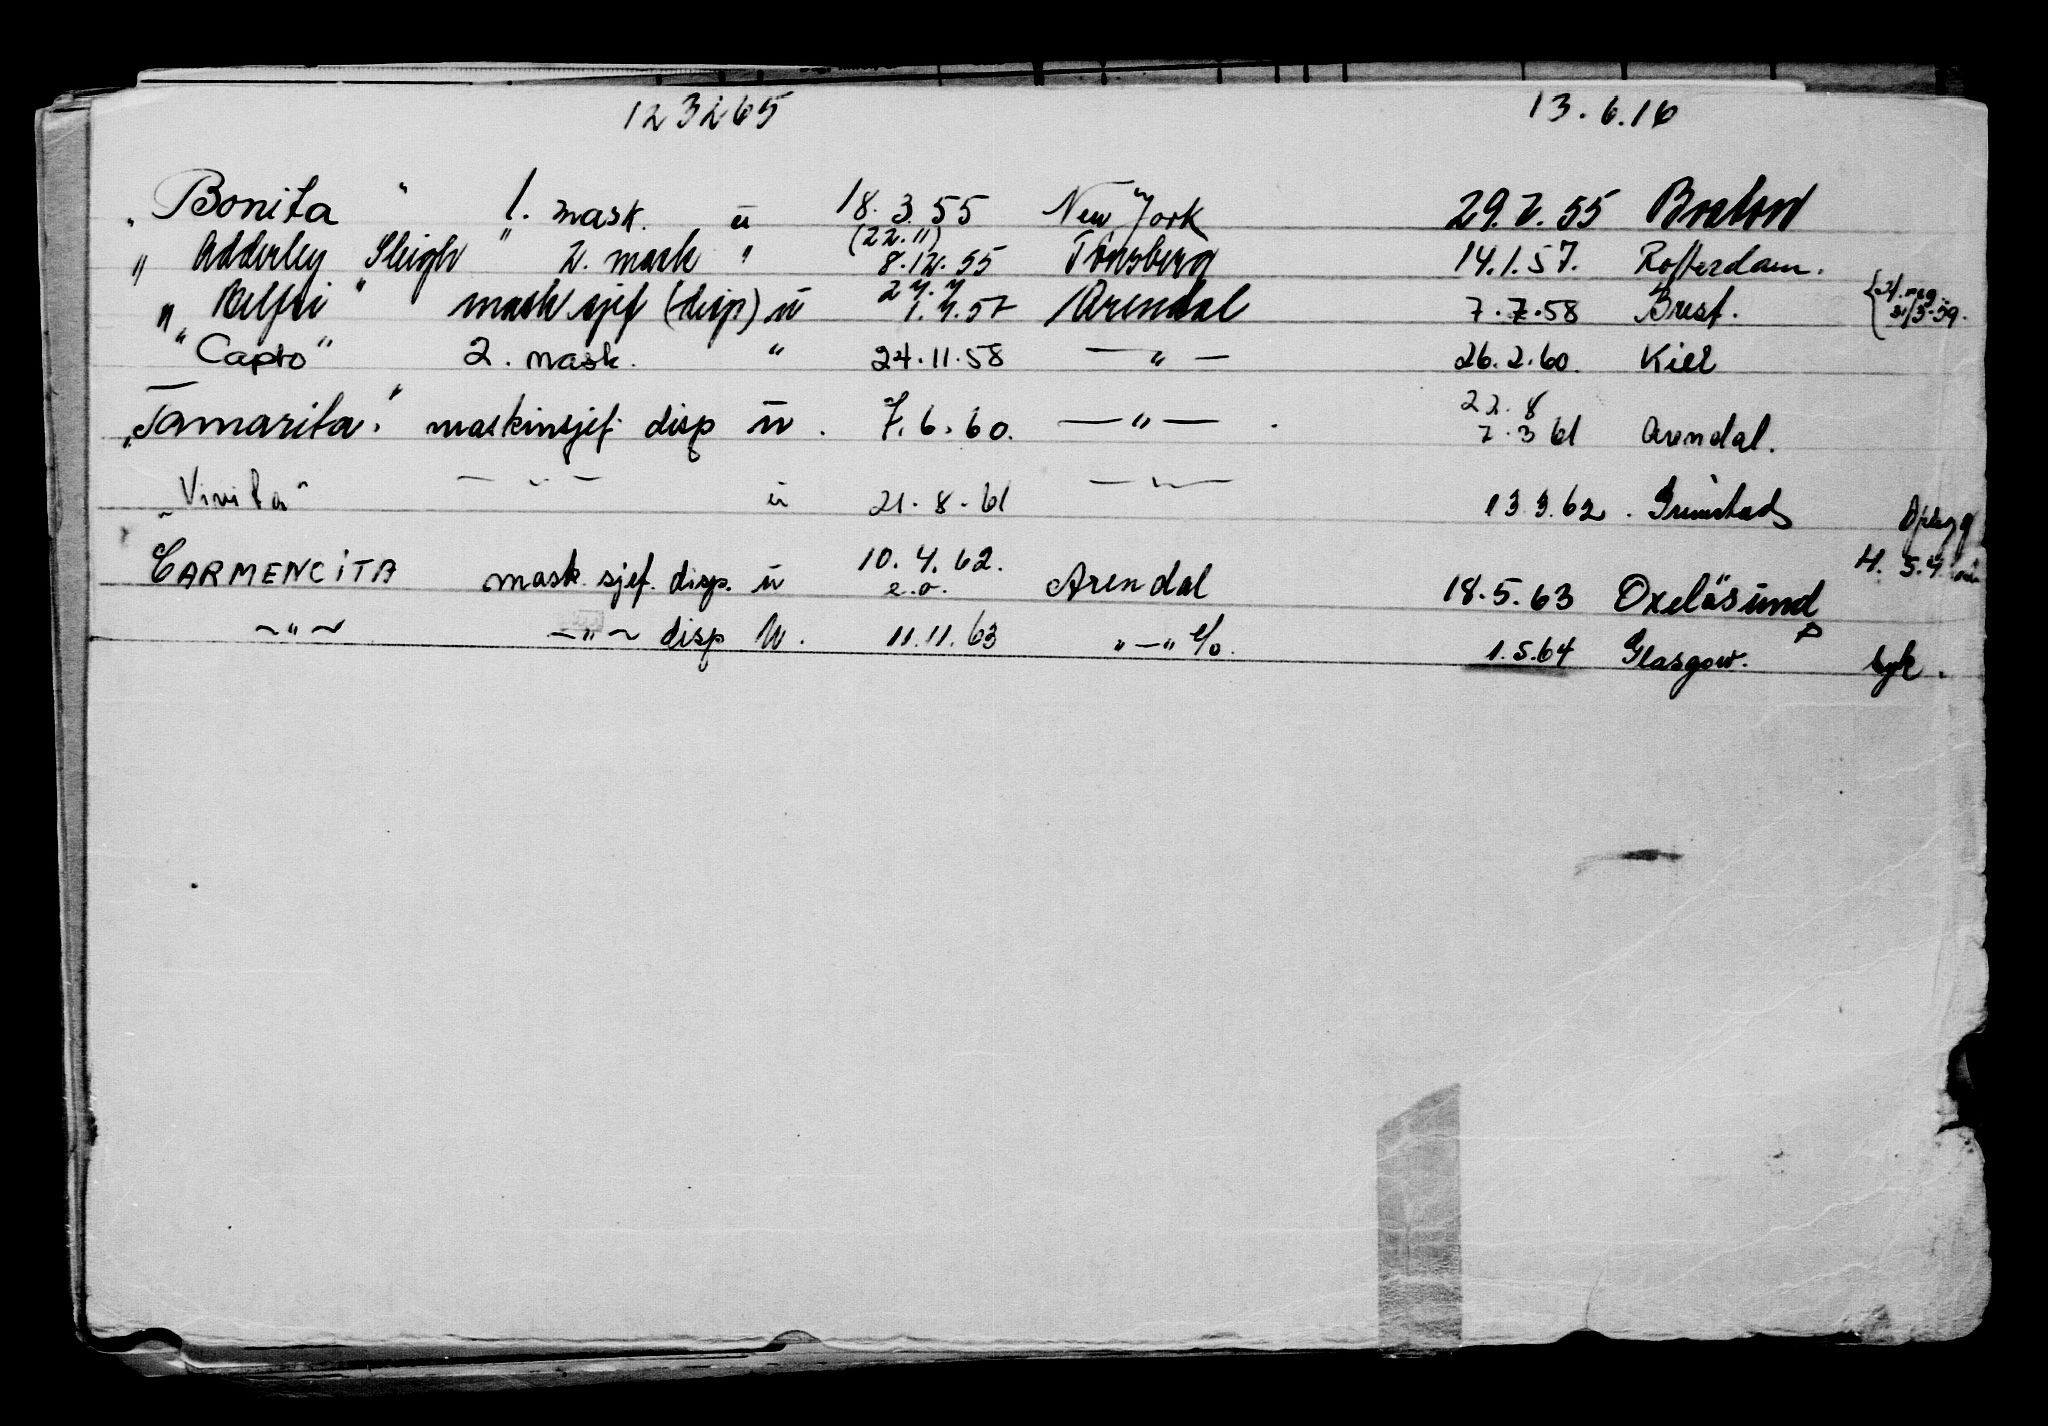 123265 13.6.16
„Bonita" 1. mask. ü 18.3.55 New York 29.7.55 Boston
(22.11)
„Adderley Sleigh" 2. mask " 8.12.55 Tønsberg 14.1.57. Rotterdam.
27.7
„ " mask sjef (disp) ü 1.7.57 Arendal 7.7.58 Brest.
"Capto" 2. mask. " 24.11.58 —"— 26.2.60. Kiel
22.8
„Tamarita." maskinsjef. disp ü. 7.6.60. —"—. 7.3 61 Arendal.
„Vivita" —"— ü 21.8.61 —"— 13 3.62. Grimstad
CARMENCITA mask. sjef. disp. ü 10.4.62. Arendal 18.5.63 Oxelösund
e.o.
~"~ ~"~ disp ü. 11.11.63 „—" e/o. 1.5.64 Glasgow. syk.